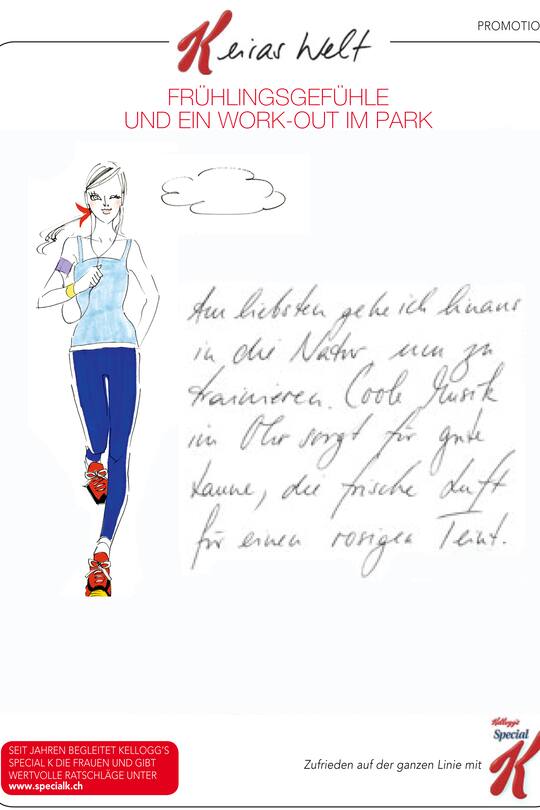 PROMOTIO
Keiras Welt
FRÜHLINGSGEFÜHLE
UND EIN WORK-OUT IM PARK
Am liebsten gehe ich hinaus
in die Natur, um zu
trainieren. Coole Musik
im Ohr sorgt für gute
Laune, die frische Luft
für einen rosigen Teint.
SEIT JAHREN BEGLEITET KELLOGG'S
SPECIAL K DIE FRAUEN UND GIBT
WERTVOLLE RATSCHLÄGE UNTER
www.specialk.ch
Zufrieden auf der ganzen Linie mit
Kellogg's
Special
K